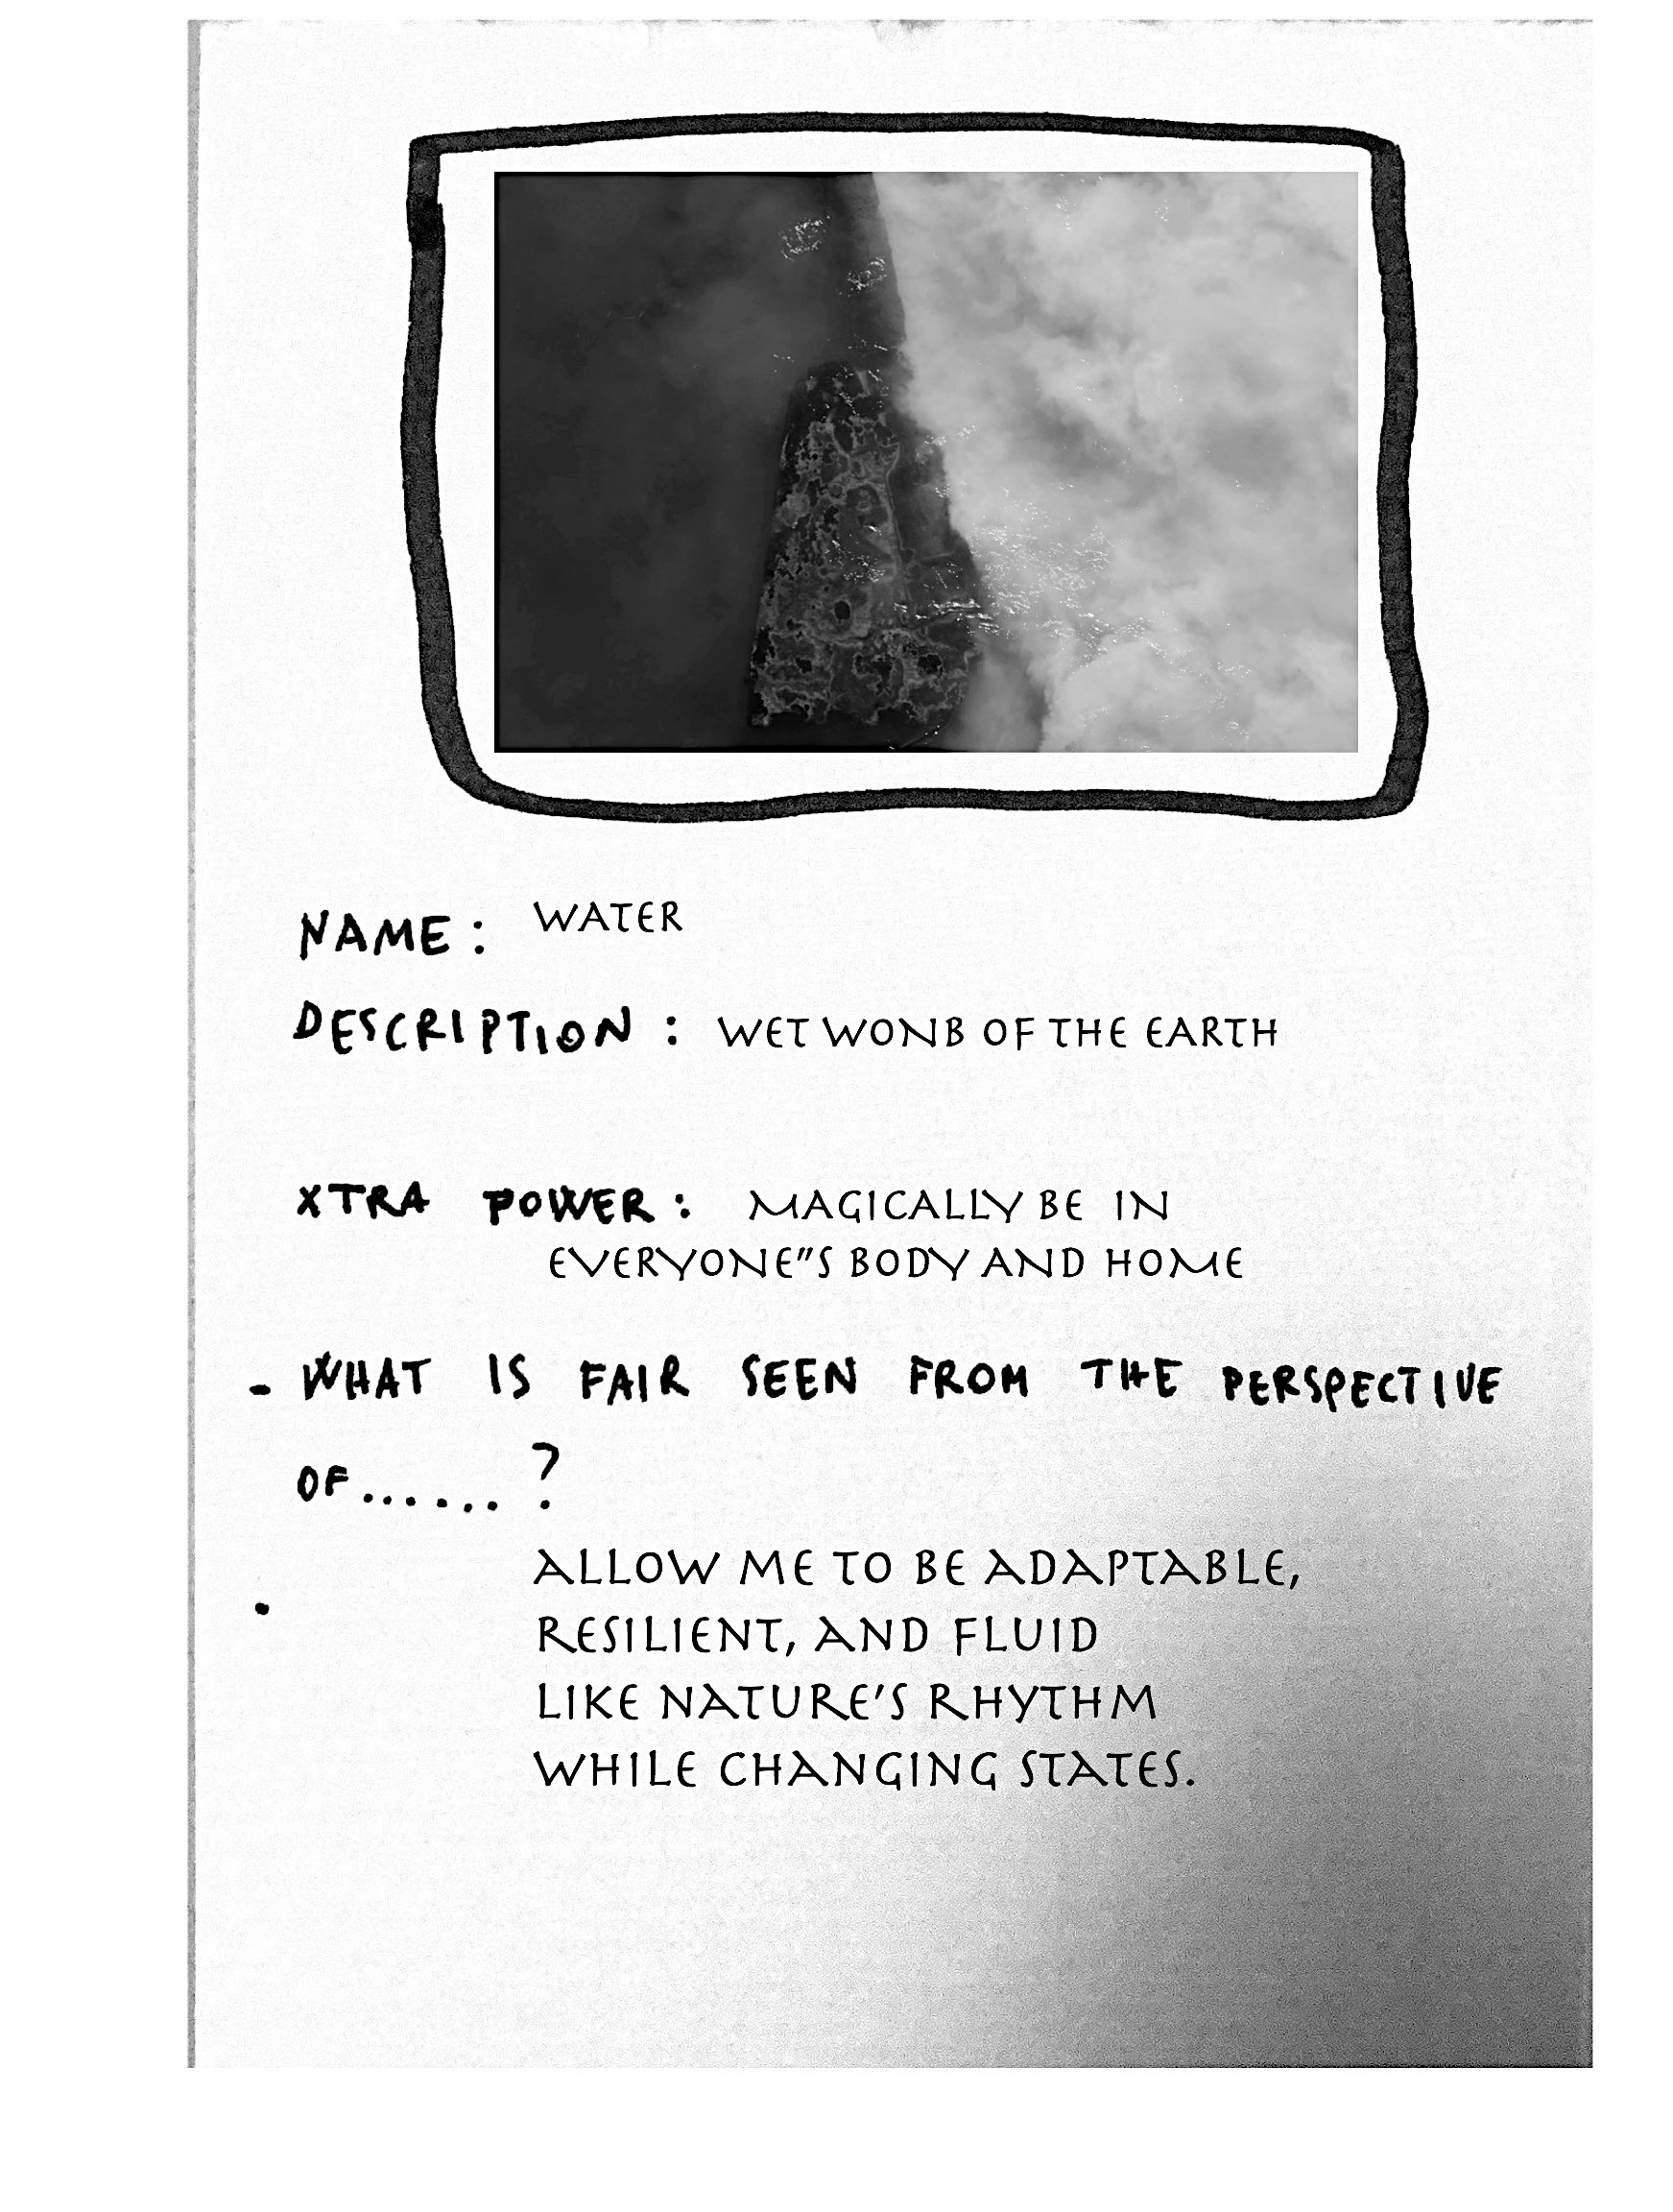 NAME: WATER
DESCRIPTION: WET WONB OF THE EARTH
XTRA POWER: MAGICALLY BE IN
EVERYONE"S BODY AND HOME
- WHAT IS FAIR SEEN FROM THE PERSPECTIVE
OF...... ?
ALLOW ME TO BE ADAPTABLE,
RESILIENT, AND FLUID
LIKE NATURE'S RHYTHM
WHILE CHANGING STATES.